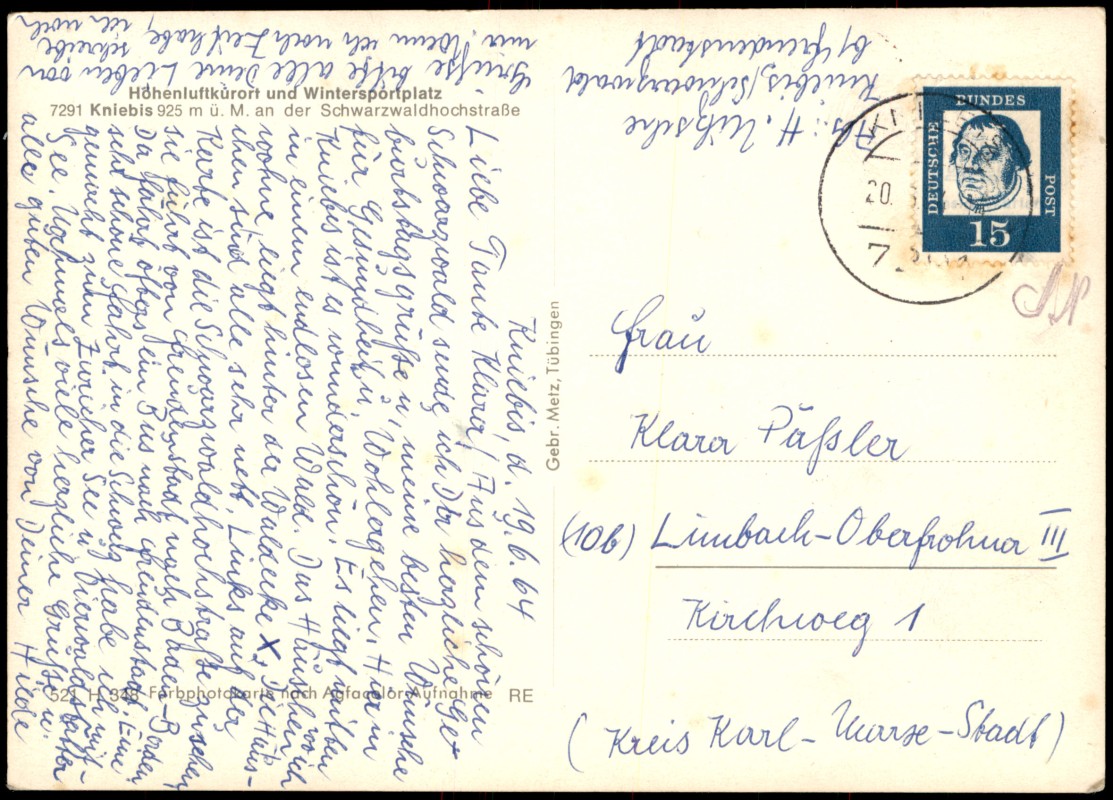 Höhenluftkurort und Wintersportplatz
7291 Kniebis 925 m ü. M. an der Schwarzwaldhochstraße
Kniebis, d. 19.6.64
Liebe Tante Klara! Aus dem schönen
Schwarzwald sende ich Dir herzliche Ge-
burtstagsgrüße u. meine besten Wünsche
für Gesundheit u. Wohlergehen. Hier in
Kniebis ist es wunderschön. Es liegt mitten
in einem endlosen Wald. Das Häuschen wo ich
wohne, liegt hinter der Waldecke X. Die Haus-
ihen sind alle sehr nett. Links auf der
Karte ist die Schwarzwaldhochstraße zu sehen
sie führt von Freudenstadt nach Baden-Baden
Da fährt öfters ein Bus nach Freudenstadt. Eine
sehr schöne Fahrt in die Schweiz habe ich mit-
gemacht zum Züricher See u. Vierwaldstätter
See. Nochmals viele herzliche Grüße u.
alle guten Wünsche von Deiner Hilde
Grüße bitte alle Deine Lieben von
mir. Wenn ich noch Zeit habe, schreibe
ich noch
Abs.: H. Nitzsche
Kniebis/Schwarzwald
b/ Freudenstadt
Gebr. Metz, Tübingen
521 H 348 Farbphotokarte nach Agfacolor-Aufnahme RE
DEUTSCHE
BUNDES
POST
15
20.
7
Frau
Klara Päßler
(10b) Limbach-Oberfrohna III
Kirchweg 1
(Kreis Karl-Marx-Stadt)